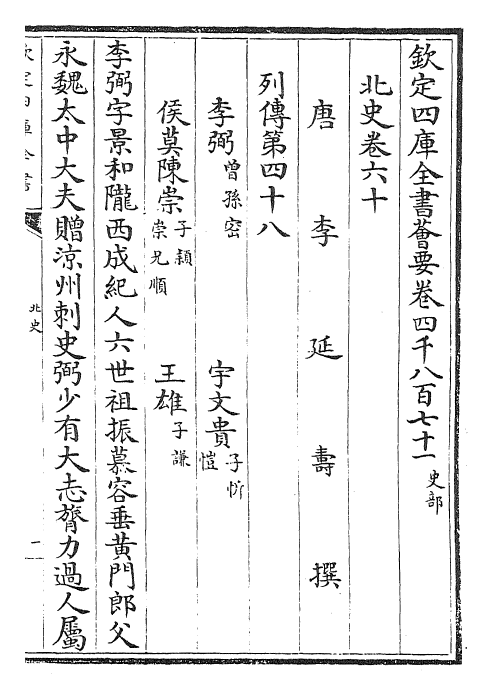 欽定四庫全書薈要卷四千八百七十一 史部
北史卷六十
唐 李 延 壽 撰
列傳第四十八
李弼 曾孫密 宇文貴 子忻 愷
侯莫陳崇 子頴 崇兄順 王雄 子謙
李弼字景和隴西成紀人六世祖振慕容垂黄門郎父
永魏太中大夫贈涼州刺史弼少有大志膂力過人屬
欽定四庫全書
北史
一